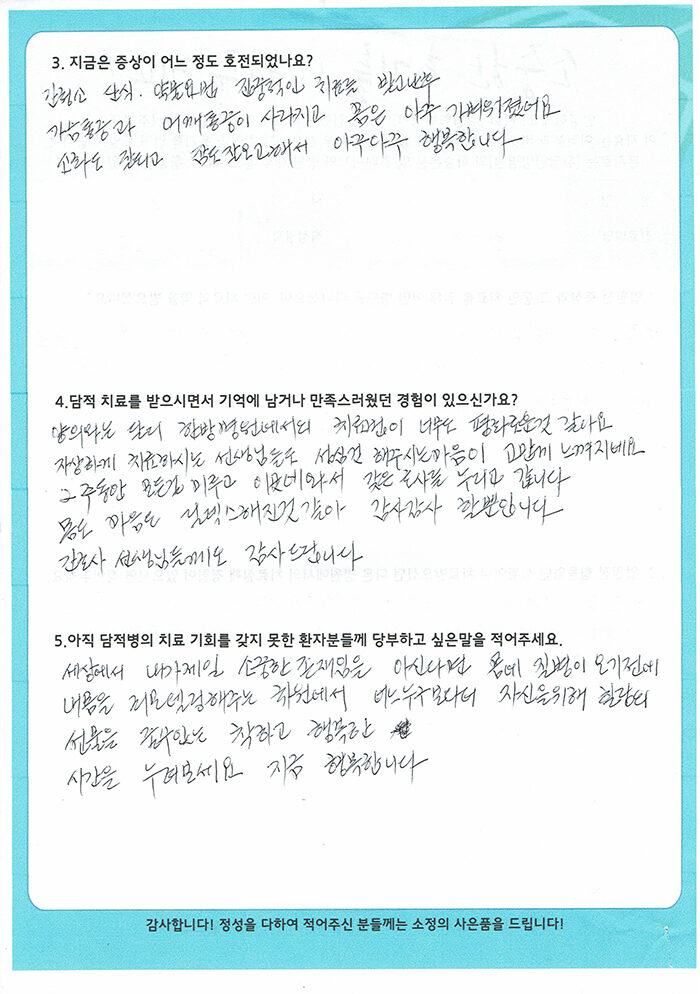 3. 지금은 증상이 어느 정도 호전되었나요?
단식. 약물요법 치료를 받고난후
가슴통증과 어깨통증이 사라지고 몸은 아주 가벼워졌어요
소화도 잘되고 잠도 잘오고해서 아주아주 행복합니다
4.담적 치료를 받으시면서 기억에 남거나 만족스러웠던 경험이 있으신가요?
양의와는 달리 한방병원에서의 치료법이 너무도 평화로운것 같아요
자상하게 치료하시는 선생님들도 성심껏 해주시는마음이 고맙게 느껴지네요
2주동안 모든걸 미루고 이곳에와서 갖은 호사를 누리고 갑니다
몸도 마음도 릴렉스해진것 같아 감사감사 할뿐입니다
간호사 선생님들께도 감사드립니다
5.아직 담적병의 치료 기회를 갖지 못한 환자분들께 당부하고 싶은말을 적어주세요.
세상에서 내가제일 소중한 존재임을 아신다면 몸에 질병이 오기전에
내몸을 리모델링해주는 차원에서 어느누구보다더 자신을위해
선물을 착하고 행복한
시간을 누려보세요 지금 행복합니다
감사합니다! 정성을 다하여 적어주신 분들께는 소정의 사은품을 드립니다!